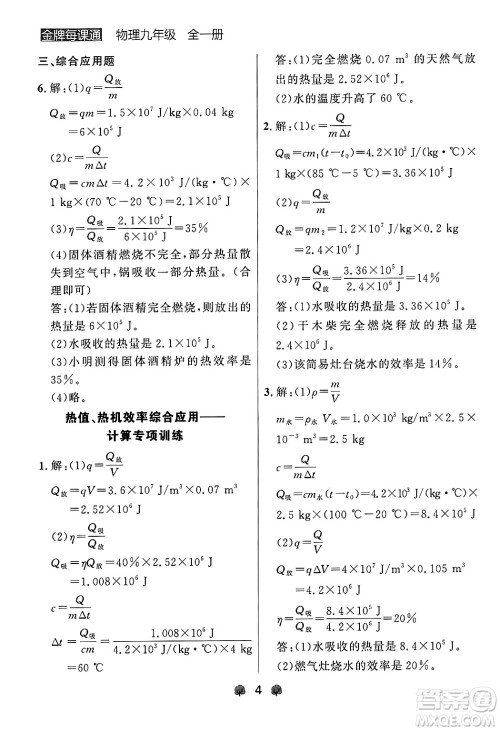 金牌每课通 物理九年级 全一册
三、综合应用题
6. 解:(1)q=Q放/m
Q放=qm=1.5×10⁷ J/kg×0.04 kg
=6×10⁵ J
(2)c=Q/(mΔt)
Q吸=cmΔt=4.2×10³ J/(kg·℃)×
1 kg×(70 ℃-20 ℃)=2.1×10⁵ J
(3)η=Q吸/Q放=2.1×10⁵ J/6×10⁵ J=35%
(4)固体酒精燃烧不完全,部分热量散
失到空气中,锅吸收一部分热量。(合
理即可)
答:(1)若固体酒精完全燃烧,则放出的
热量 6×10⁵ J。
(2)水吸收的热量为 2.1×10⁵ J。
(3)小明测得固体酒精炉的热效率是
35%。
(4)略。
热值、热机效率综合应用——
计算专项训练
1. 解:(1)q=Q放/V
Q放=qV=3.6×10⁷ J/m³×0.07 m³
=2.52×10⁶ J
(2)η=Q吸/Q放
Q吸=ηQ放=40%×2.52×10⁶ J=
1.008×10⁶ J
c=Q/(mΔt)
Δt=Q吸/cm=1.008×10⁶ J/(4.2×10³ J/(kg·℃)×4 kg)
=60 ℃
答:(1)完全燃烧 0.07 m³ 的天然气放
出的热量是 2.52×10⁶ J。
(2)水的温度升高了 60 ℃。
2. 解:(1)c=Q/(mΔt)
Q吸=cm₁(t-t₀)=4.2×10³ J/(kg·℃)
×1 kg×(85 ℃-5 ℃)=3.36×10⁵ J
(2)q=Q放/m
Q放=qm₂=1.2×10⁷ J/kg×0.2 kg=
2.4×10⁶ J
(3)η=Q吸/Q放=3.36×10⁵ J/2.4×10⁶ J=14%
答:(1)水吸收的热量是 3.36×10⁵ J。
(2)干木柴完全燃烧释放的热量是
2.4×10⁶ J。
(3)该简易灶台烧水的效率是 14%。
3. 解:(1)ρ=m/V
m水=ρ水V水=1.0×10³ kg/m³×2.5×
10⁻³ m³=2.5 kg
c=Q/(mΔt)
Q吸=cm水(t-t₀)=4.2×10³ J/(kg·℃)×
2.5 kg×(100 ℃-20 ℃)=8.4×10⁵ J
(2)q=Q/V
Q放=qΔV=4.2×10⁷ J/m³×0.1 m³=
4.2×10⁶ J
η=Q吸/Q放=8.4×10⁵ J/4.2×10⁶ J=20%
答:(1)水吸收的热量是 8.4×10⁵ J。
(2)燃气灶烧水的效率是 20%。
4
答案圈